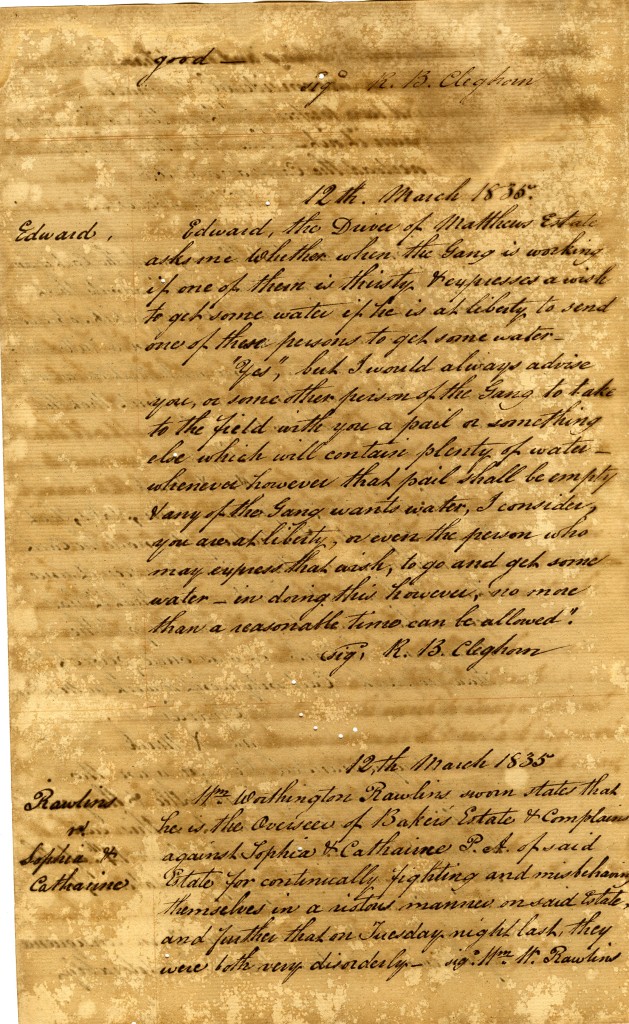 good —
sigd. R. B. Cleghorn
12th. March 1835.
Edward,
Edward, the Driver of Matthews Estate
asks me whether when the Gang is working
if one of them is thirsty & expresses a wish
to get some water if he is at liberty to send
one of these persons to get some water —
"Yes", but I would always advise
you, or some other person of the Gang to take
to the field with you a pail or something
else which will contain plenty of water —
whenever however that pail shall be empty
& any of the Gang wants water, I consider,
you are at liberty, or even the person who
may express that wish, to go and get some
water — in doing this however, no more
than a reasonable time can be allowed".
sigd. R. B. Cleghorn
12,th March 1835
Rawlins
vs
Sophia &
Catharine
Wm Worthington Rawlins sworn states that
he is the Overseer of Baker's Estate & Complains
against Sophia & Catharine P. A. of said
Estate for continually fighting and misbehaving
themselves in a riotous manner on said Estate,
and further that on Tuesday night last, they
were both very disorderly — sigd. Wm W. Rawlins